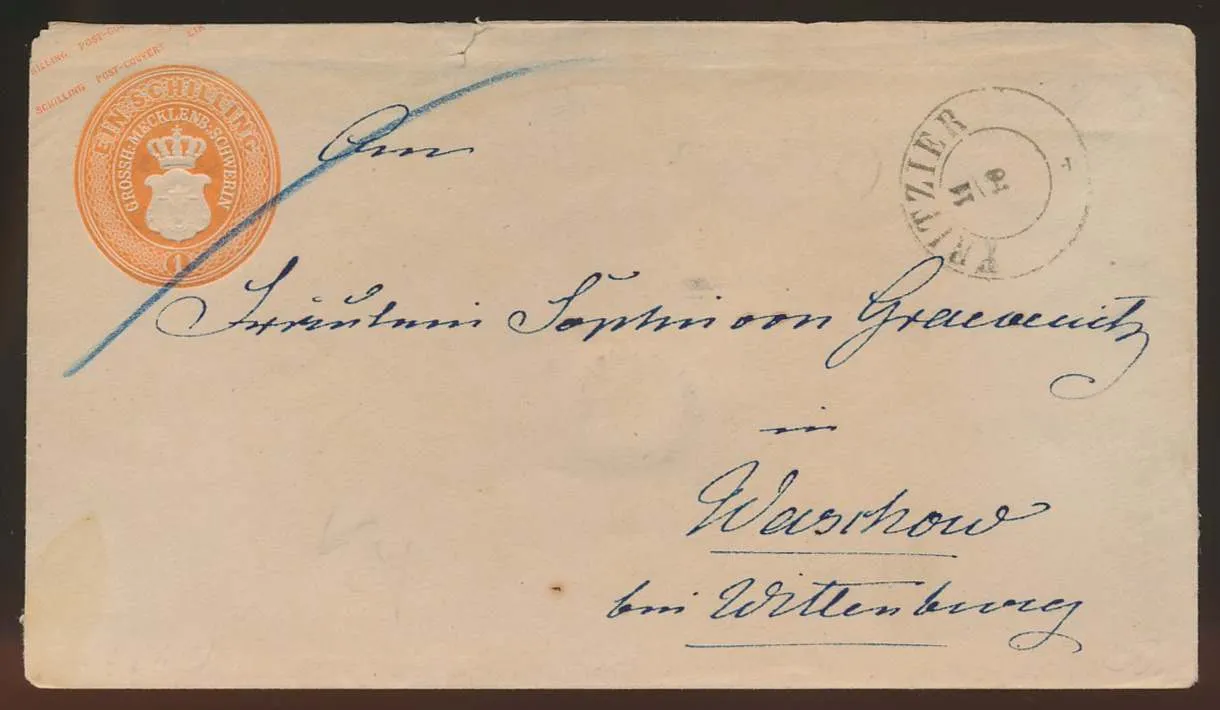 ILLING POST-COUVERT EIN
SCHILLING POST-COUVERT
EIN SCHILLING
GROSSH. MECKLENB. SCHWERIN
1
KRITZIER
11
An
Fräulein Sophie von Graevenitz
in
Waschow
bei Wittenburg